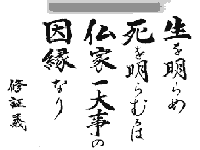 生を明らめ
死を明らむるは
仏家一大事の
因縁なり
修証義